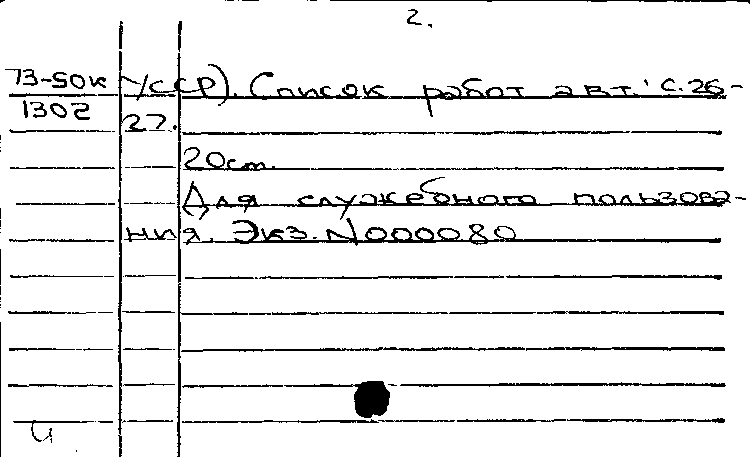 2.
73-50к УССР). Список работ авт.: с.26-
1302
27.
20cm.
Для служебного пользова-
ния. Экз.N000080
И